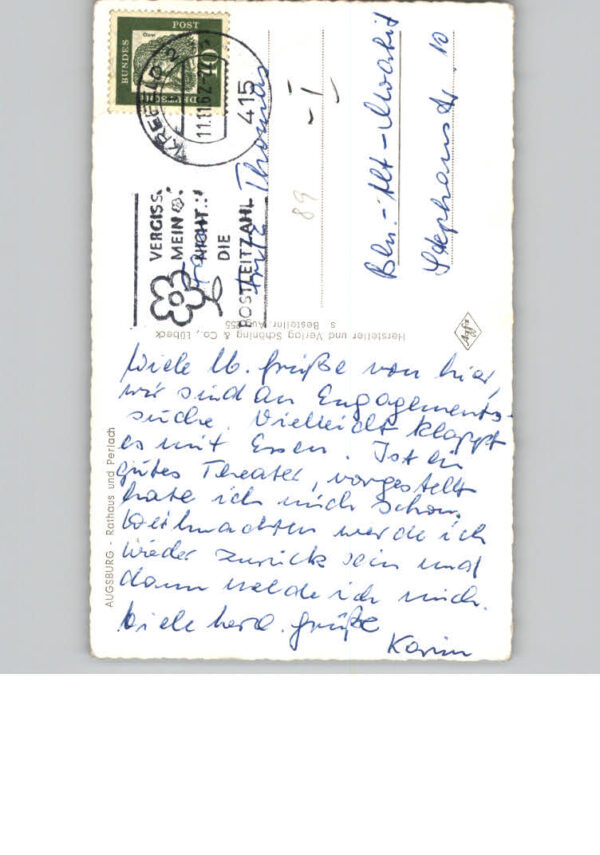 BUNDES
POST
DEUTSCHE
KREFELD 2
11.11.62
415
VERGISS
MEIN
NICHT
DIE
POSTLEITZAHL
Fritz Thomas
Bln.-Alt-Moabit
Stephanstr. 10
- I
89
Hersteller und Verlag Schöning & Co., Lübeck
Bestellnr
Agfa
AUGSBURG - Rathaus und Perlach
Viele lb. Grüße von hier,
wir sind an Engagements-
suche. Vielleicht klappt
es mit Essen. Ist ein
gutes Theater, vorgestellt
habe ich mich schon.
Weihnachten werde ich
wieder zurück sein und
dann melde ich mich.
Viele herzl. Grüße
Karin